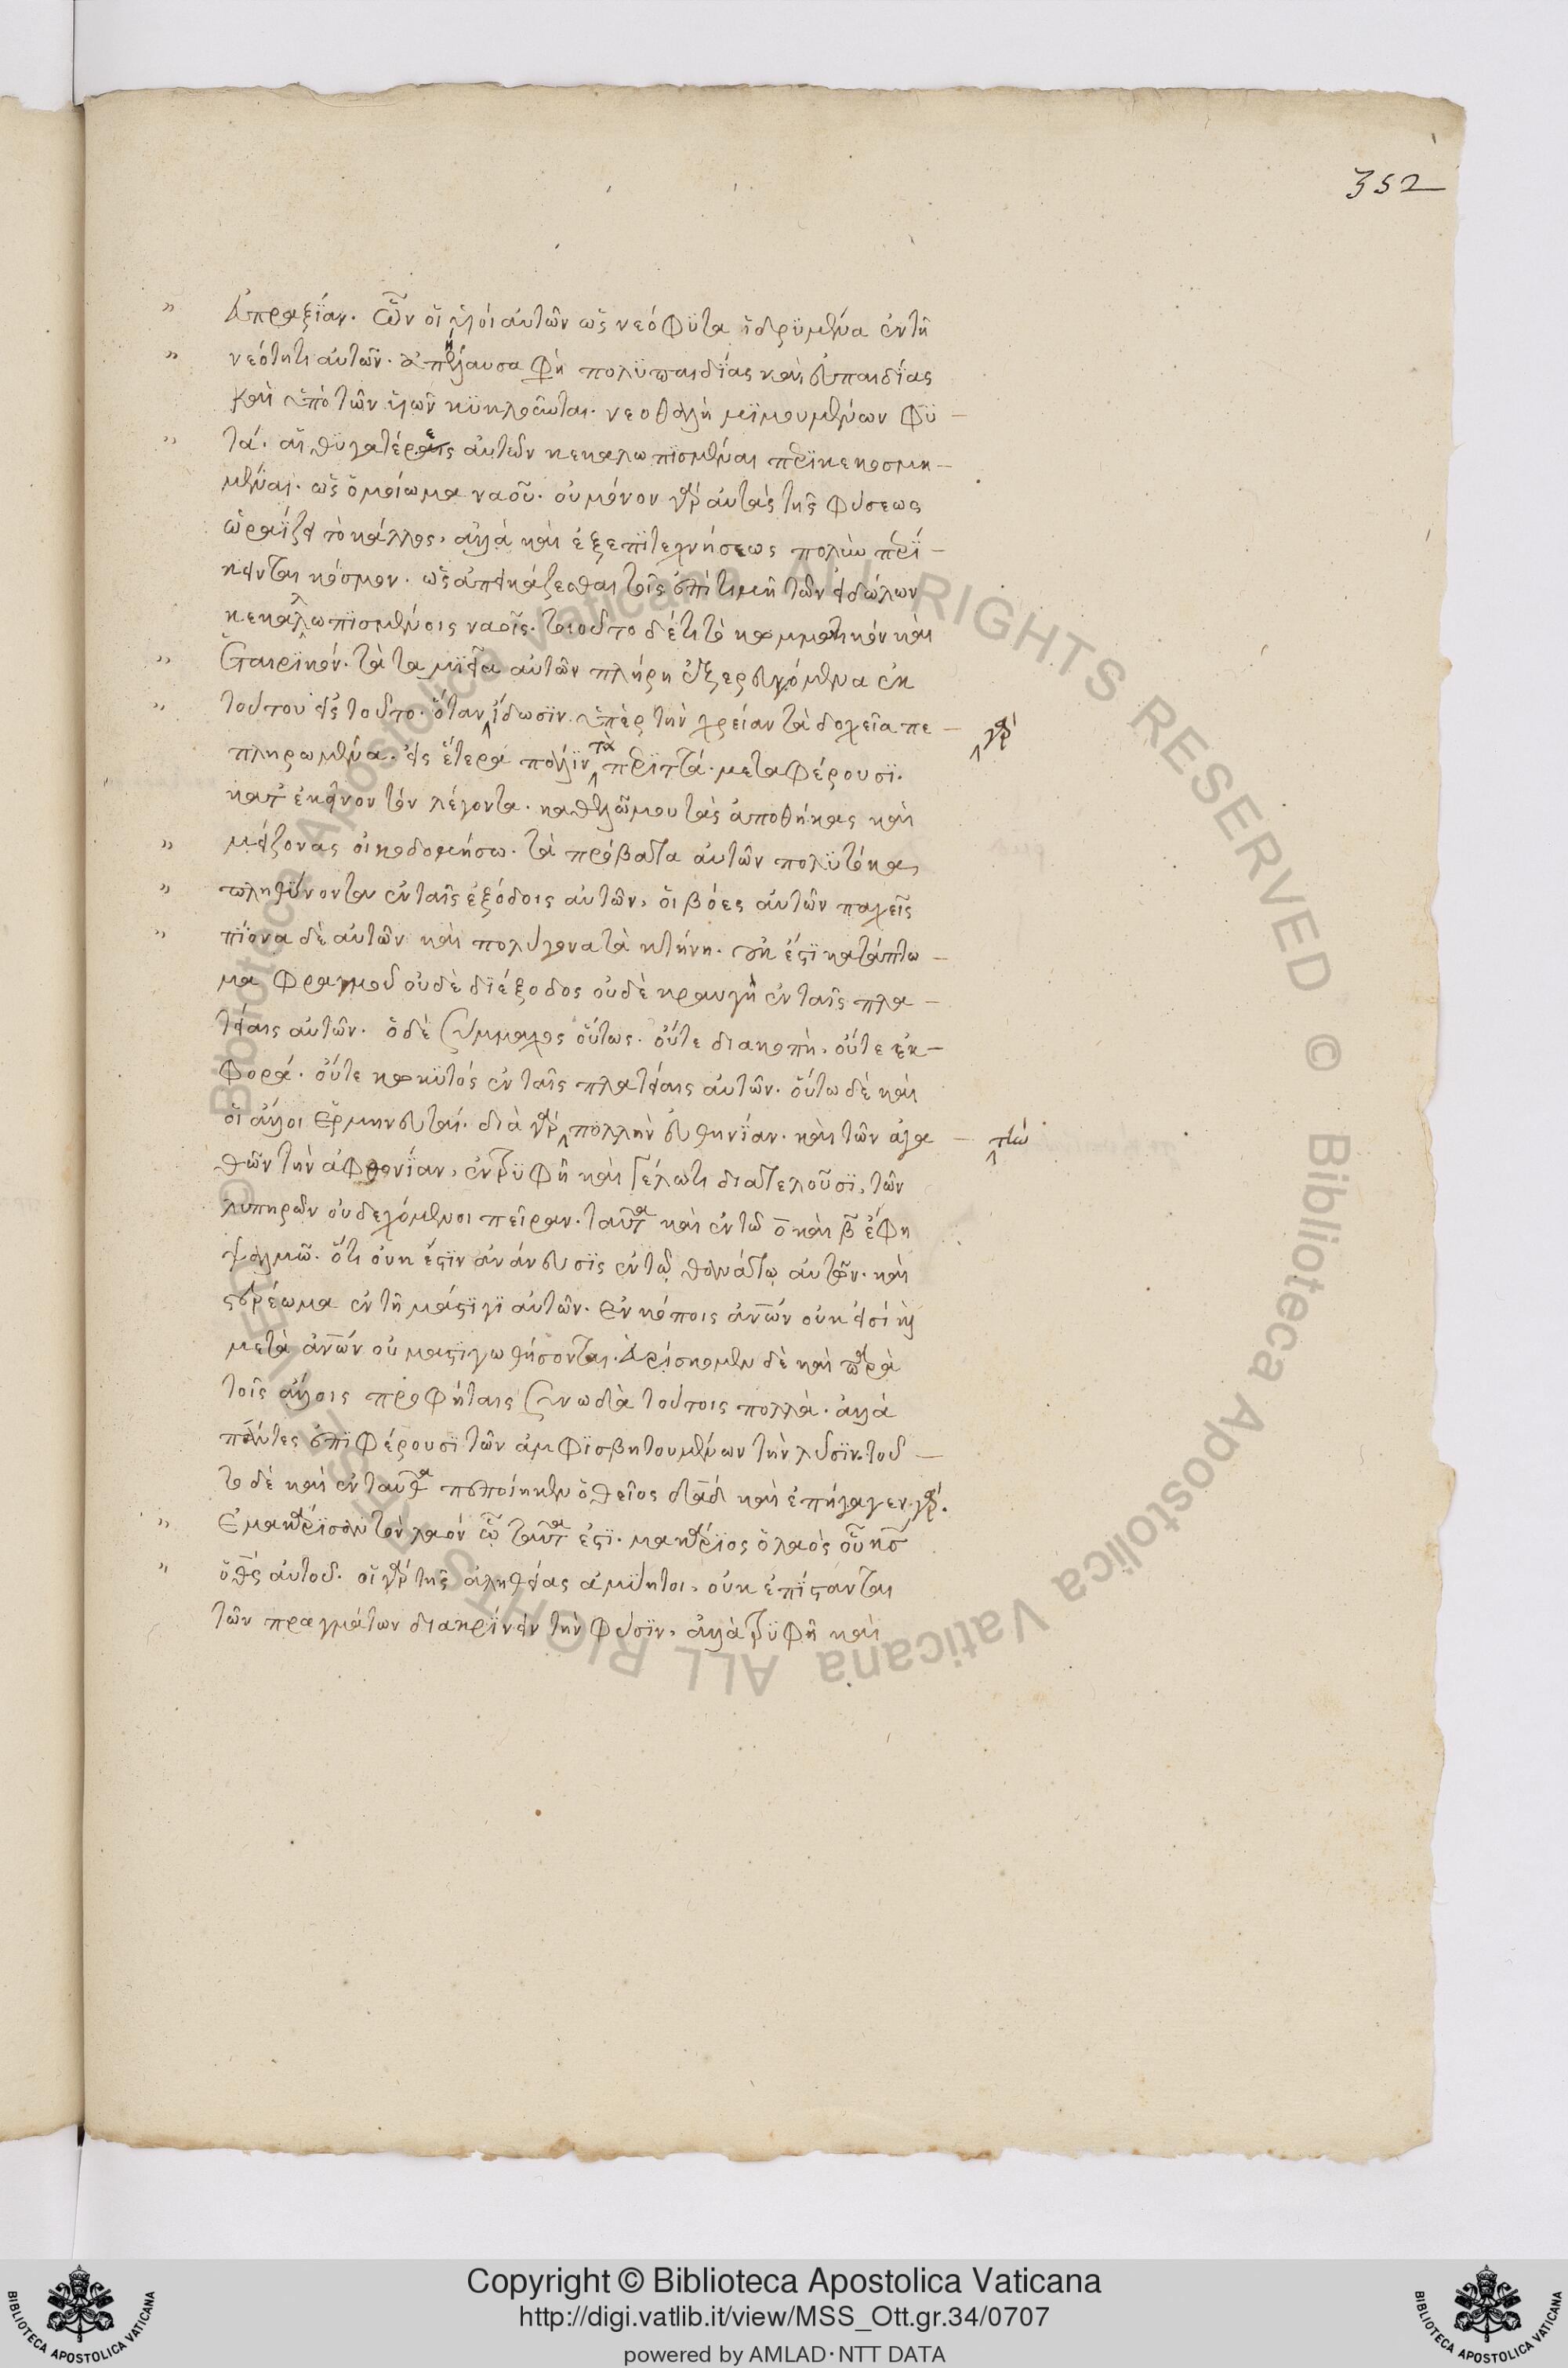 352
εὐπραξίαν. ὧν οἱ υἱοὶ αὐτῶν ὡς νεόφϋτα ἱδρϋμένα ἐν τῆ
νεότητι αὐτῶν. ἀπήλαυσα φη πολϋπαιδίας καὶ εὐπαιδίας
καὶ ὑπὸ τῶν υἱῶν κϋκλοῦνται. νεοθαλῆ μϊμουμένων φϋ
τά. αἱ θϋγατέρες αὐτῶν κεκαλωπϊσμέναι περϊκεκοσμη
μέναι. ὡς ὁμοίωμα ναοῦ. οὐ μόνον γὰρ αὐτὰς τῆς φύσεως
ὡραΐζει τὸ κάλλος, ἀλλὰ καὶ ἐξ ἐπϊτεχνήσεως πολὺν περϊ
κεινται κόσμον. ὡς ἀπεικάζεσθαι τοῖς ἐπὶ τιμῆ τῶν εἰδώλων
κεκαλλωπϊσμένοις ναοῖς. τοιοῦτο δέ τι τὸ κομμωτικὸν καὶ
ἑταιρϊκόν. τὰ ταμϊεῖα αὐτῶν πλήρη ἐξερευγόμενα ἐκ
τούτου εἰς τοῦτο. ὅταν ἴδωσϊν ὑπὲρ τὴν χρείαν τὰ δοχεῖα πε
γὰρ
πληρωμένα. εἰς ἕτερα πάλϊν τὰ περϊττά. μεταφέρουσϊ.
κατ' ἐκεῖνον τὸν λέγοντα. καθελῶ μου τὰς ἀποθήκας καὶ
μείζονας οἰκοδομήσω. τὰ πρόβατα αὐτῶν πολϋτόκα,
πληθΰνοντα ἐν ταῖς ἐξόδοις αὐτῶν, οἱ βόες αὐτῶν παχεῖς
πϊόνα δὲ αὐτῶν καὶ πολύγονα τὰ κτήνη. οὐκ ἔστϊ κατάπτω
μα φραγμοῦ οὐδὲ δϊέξοδος οὐδὲ κραυγὴ ἐν ταῖς πλα
τείαις αὐτῶν. ὁ δὲ Σύμμαχος οὕτως. οὔτε διακοπὴ, οὔτε ἐκ
φορά. οὔτε κωκϋτός ἐν ταῖς πλατείαις αὐτῶν. οὕτω δὲ καὶ
οἱ ἄλλοι ἑρμηνευταί. διὰ γὰρ πολλὴν εὐθηνίαν. καὶ τῶν ἀγα
τὴν
θῶν τὴν ἀφθονΐαν, ἐν τρϋφῆ καὶ γέλωτι διατελοῦσϊ, τῶν
λυπηρῶν οὐ δεχόμενοι πεῖραν. ταῦτα καὶ ἐν τῶ ο καὶ β ἔφη
ψαλμῶ. ὅτι οὐκ ἔστϊν ἀνάνευσϊς ἐν τῶ θανάτω αὐτῶν. καὶ
στερέωμα ἐν τῆ μάστϊγϊ αὐτῶν. ἐν κόποις ἀνων οὐκ εἰσί καὶ
μετὰ ἀνων οὐ μαστϊγωθήσονται. εὑρίσκομεν δὲ καὶ παρὰ
τοῖς ἄλλοις προφήταις συνωδὰ τούτοις πολλά. ἀλλὰ
πάντες ἐπϊφέρουσϊ τῶν ἀμφϊσβητουμένων τὴν λύσϊν. τοῦ
το δὲ καὶ ἐνταῦθα πεποίηκεν ὁ θεῖος δαδ καὶ ἐπήγαγεν γάρ.
ἐμακάρϊσαν τὸν λαὸν ὧ ταῦτα ἐστϊ. μακάρϊος ὁ λαὸς οὗ κς
ὁ θς αὐτοῦ. οἱ γὰρ τῆς ἀληθείας ἀμΰητοι, οὐκ ἐπϊστανται
τῶν πραγμάτων διακρΐνειν τὴν φύσϊν, ἀλλὰ τρϋφῆ καὶ
Copyright © Biblioteca Apostolica Vaticana
http://digi.vatlib.it/view/MSS_Ott.gr.34/0707
powered by AMLAD·NTT DATA
BIBLIOTECA APOSTOLICA VATICANA
BIBLIOTECA APOSTOLICA VATICANA
© Biblioteca Apostolica Vaticana ALL RIGHTS RESERVED
© Biblioteca Apostolica Vaticana ALL RIGHTS RESERVED